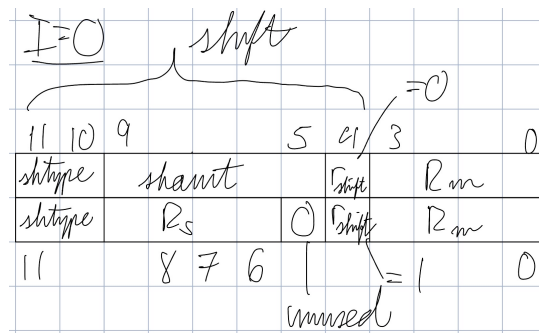 I=0
shift
=0
11 10 9 5 4 3 0
shtype shamt rshift Rm
shtype Rs 0 rshift Rm
11 8 7 6 =1 0
unused